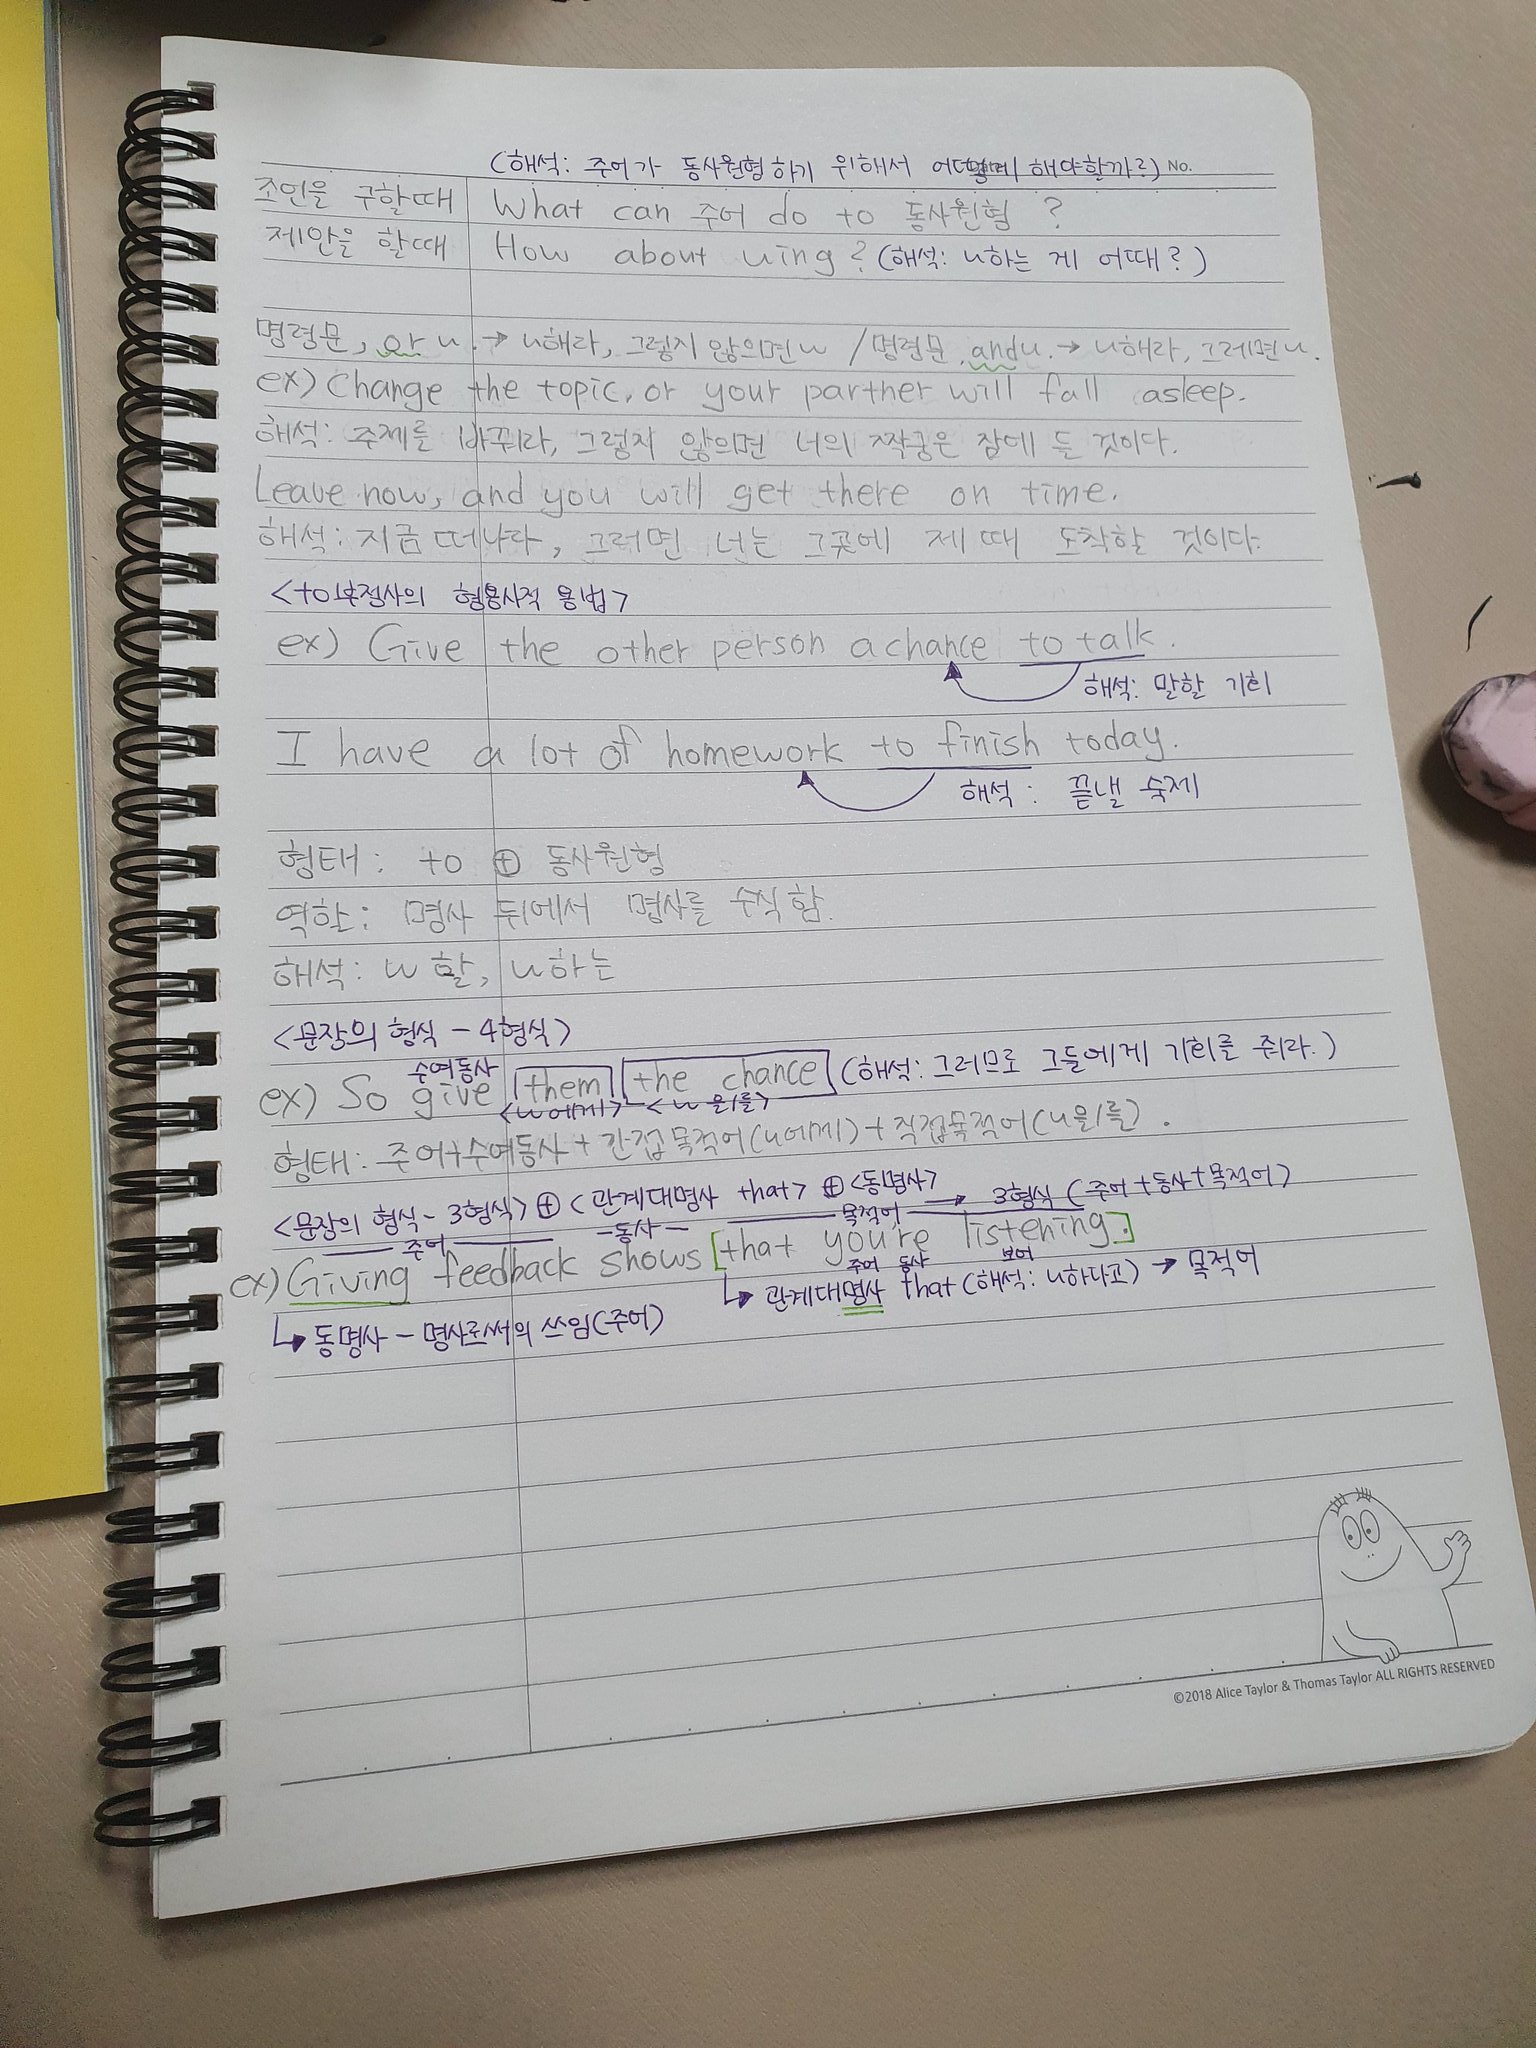 (해석: 주어가 동사원형하기 위해서 어떻게 해야할까?) No.
조언을 구할때 What can 주어 do to 동사원형 ?
제안을 할때 How about ~ing? (해석: ~하는 게 어때?)
명령문, or ~. → ~해라, 그렇지 않으면~ / 명령문, and~. → ~해라, 그러면~.
ex) Change the topic, or your partner will fall asleep.
해석: 주제를 바꿔라, 그렇지 않으면 너의 짝궁은 잠에 들 것이다.
Leave now, and you will get there on time.
해석: 지금 떠나라, 그러면 너는 그곳에 제 때 도착할 것이다.
<to부정사의 형용사적 용법>
ex) Give the other person a chance to talk.
해석: 말할 기회
I have a lot of homework to finish today.
해석: 끝낼 숙제
형태: to ⊕ 동사원형
역할: 명사 뒤에서 명사를 수식함.
해석: ~할, ~하는
<문장의 형식 - 4형식>
수여동사
ex) So give them the chance (해석: 그러므로 그들에게 기회를 줘라.)
<~에게> <~을/를>
형태: 주어+수여동사+간접목적어(~에게)+직접목적어(~을/를).
<문장의 형식- 3형식> ⊕ <관계대명사 that> ⊕ <동명사> → 3형식 (주어+동사+목적어)
주어 동사 목적어
ex) Giving feedback shows [that you're listening.]
주어 동사 보어
↳ 관계대명사 that (해석: ~하다고) → 목적어
↳ 동명사 - 명사로써의 쓰임(주어)
©2018 Alice Taylor & Thomas Taylor ALL RIGHTS RESERVED